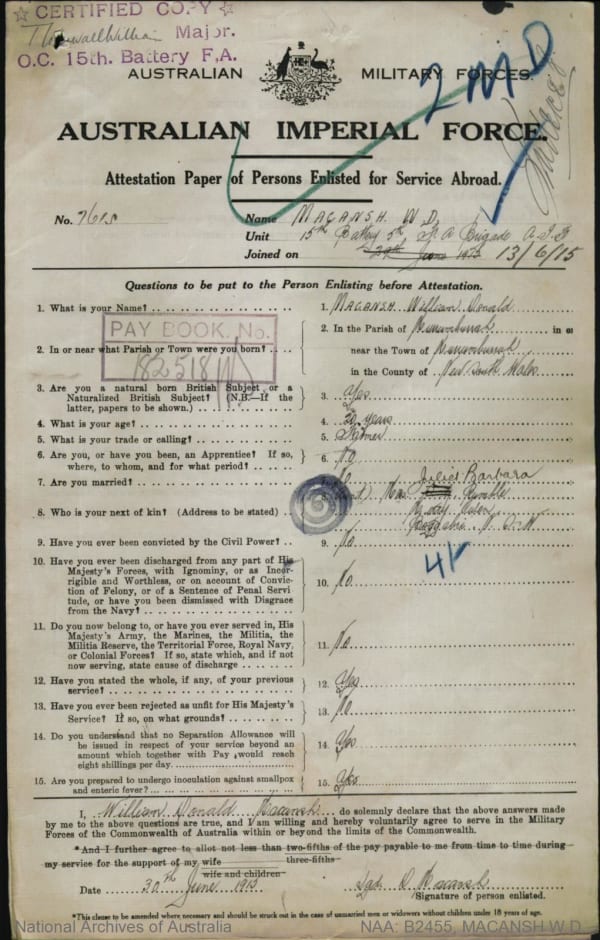 ☆ CERTIFIED COPY ☆
Major.
O.C. 15th. Battery F.A.
2 MD
AUSTRALIAN MILITARY FORCES.
AUSTRALIAN IMPERIAL FORCE.
Attestation Paper of Persons Enlisted for Service Abroad.
No. 7615 Name MACANSH. W.D.
Unit 15th Battery 5th F.A Brigade A.I.F
Joined on 29th June 1915 13/6/15
Questions to be put to the Person Enlisting before Attestation.
1. What is your Name? 1. MACANSH. William Donald
PAY BOOK. No.
182518
2. In or near what Parish or Town were you born? 2. In the Parish of in or
near the Town of
in the County of New South Wales
3. Are you a natural born British Subject or a
Naturalized British Subject? (N.B.—If the
latter, papers to be shown.) 3. Yes
4. What is your age? 4. 20 years
5. What is your trade or calling? 5. Farmer
6. Are you, or have you been, an Apprentice? If so,
where, to whom, and for what period? 6. No
7. Are you married? 7. No
8. Who is your next of kin? (Address to be stated) 8. (Aunt) Mrs Juliet Barbara
N.S.W
9. Have you ever been convicted by the Civil Power? 9. No
41
10. Have you ever been discharged from any part of His
Majesty's Forces, with Ignominy, or as Incor-
rigible and Worthless, or on account of Convic-
tion of Felony, or of a Sentence of Penal Servi-
tude, or have you been dismissed with Disgrace
from the Navy? 10. No
11. Do you now belong to, or have you ever served in, His
Majesty's Army, the Marines, the Militia, the
Militia Reserve, the Territorial Force, Royal Navy,
or Colonial Forces? If so, state which, and if not
now serving, state cause of discharge 11. No
12. Have you stated the whole, if any, of your previous
service? 12. Yes
13. Have you ever been rejected as unfit for His Majesty's
Service? If so, on what grounds? 13. No
14. Do you understand that no Separation Allowance will
be issued in respect of your service beyond an
amount which together with Pay would reach
eight shillings per day. 14. Yes
15. Are you prepared to undergo inoculation against smallpox
and enteric fever? 15. Yes
I, William Donald Macansh do solemnly declare that the above answers made
by me to the above questions are true, and I am willing and hereby voluntarily agree to serve in the Military
Forces of the Commonwealth of Australia within or beyond the limits of the Commonwealth.
*And I further agree to allot not less than two-fifths of the pay payable to me from time to time during
three-fifths
my service for the support of my wife
wife and children
Date 30th June 1915 Sgd. D. Macansh
Signature of person enlisted.
*This clause to be amended where necessary and should be struck out in the case of unmarried men or widowers without children under 18 years of age.
National Archives of Australia NAA: B2455, MACANSH W D